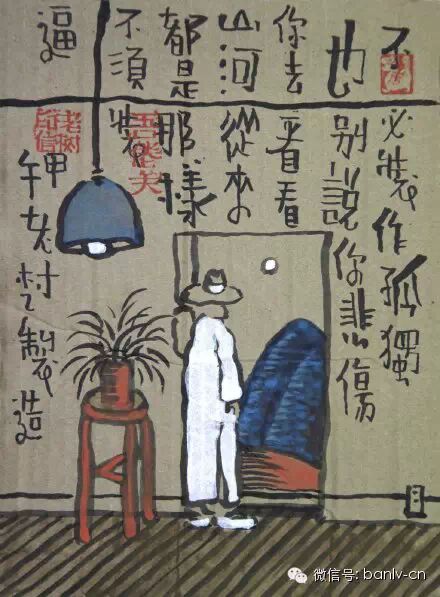 不必裝作孤獨
也別說你悲傷
你去看看
山河從來
都是那樣
不須裝
逼
甲午老树製造
老树印信
微信号: banlv-cn